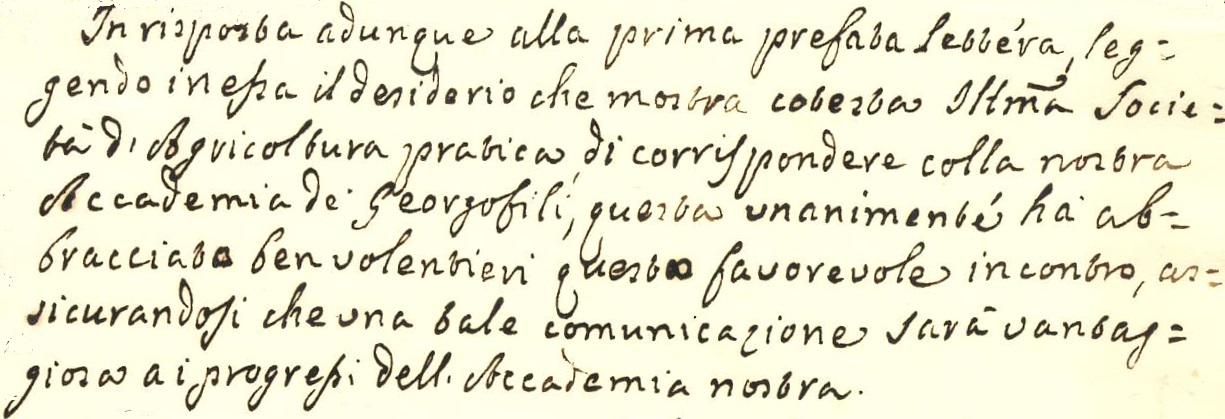 In risposta adunque alla prima prefata lettera, leg=
gendo in essa il desiderio che mostra cotesta Illm̃a Socie=
tà d'Agricoltura pratica, di corrispondere colla nostra
Accademia de' Georgofili, questa unanimente ha ab=
bracciato ben volentieri questo favorevole incontro, as=
sicurandosi che una tale comunicazione sarà vantag=
giosa ai progressi dell'Accademia nostra.